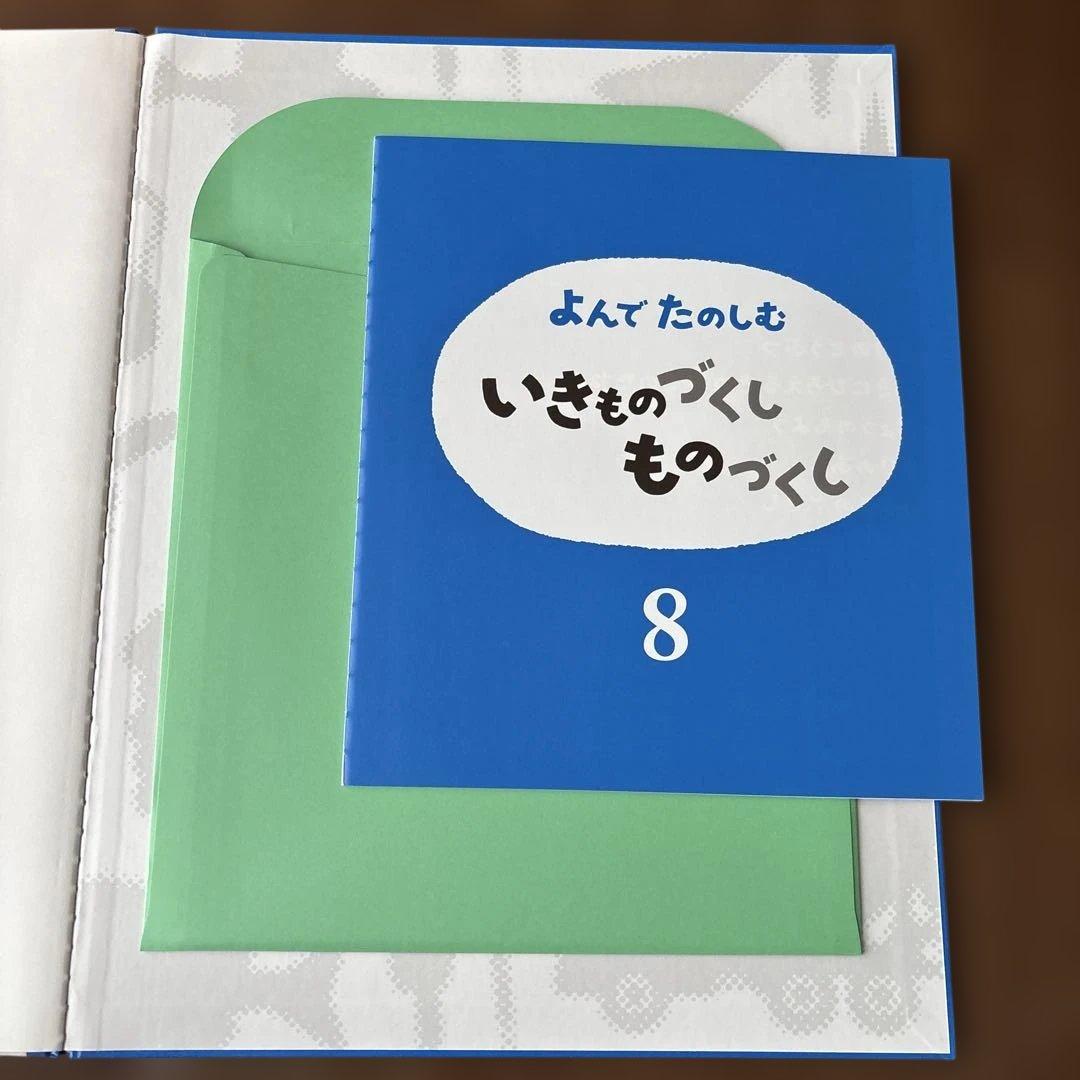 よんで たのしむ
いきものづくし
ものづくし
8